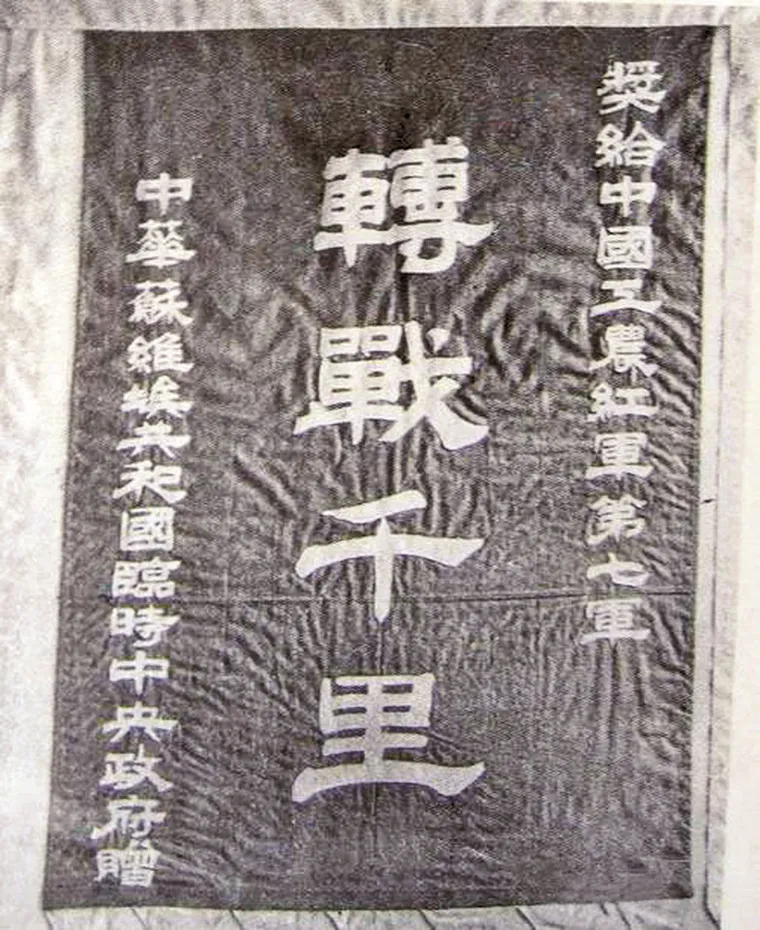 獎給中國工農紅軍第七軍
轉戰千里
中華蘇維埃共和國臨時中央政府贈